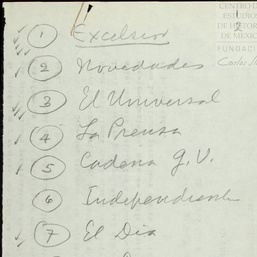 CENTRO D
ESTUDIOS
DE HISTOR
DE MEXIC
FUNDACI
Carlos Sl
1 Excelsior
2 Novedades
3 El Universal
4 La Prensa
5 Cadena G.V.
6 Independiente
7 El Dia